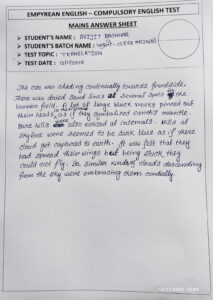 EMPYREAN ENGLISH – COMPULSORY ENGLISH TEST
MAINS ANSWER SHEET
➤ STUDENT'S NAME : AVIJIT
➤ STUDENT'S BATCH NAME : (CLERK MAINS)
➤ TEST TOPIC : TRANSLATION
➤ TEST DATE :
The car was heading continually towards frontside.
There was dried sand lines at several spots in the
barren field. A lot of large black rocks peeped out
their heads, as if they symbolised earth's mantle.
Bare hills were also noticed at intervals. Hills at
skyline were seemed to be dark blue as if there
cloud got captured to earth. It was felt that they
had spread their wings but being stuck they
could not fly. So similar kinds of clouds descending
from the sky were embracing them cordially.